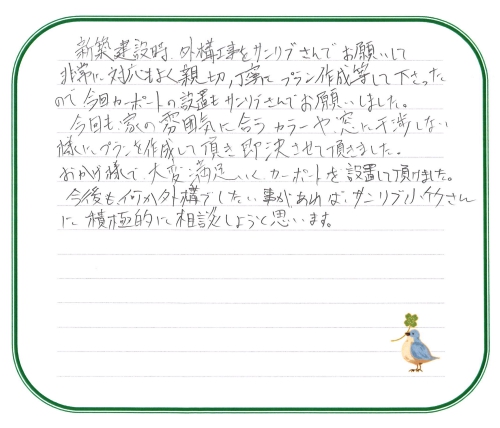 新築建設時、外構工事をサンリブさんでお願いして
非常に対応もよく親切、丁寧にプラン作成等して下さった
ので今回カーポートの設置もサンリブさんでお願いしました。
今回も、家の雰囲気に合うカラーや、窓に干渉しない
様に、プランを作成して頂き即決させて頂きました。
おかげ様で、大変満足いくカーポートを設置して頂けました。
今後も何か外構でしたい事があれば、サンリブ小竹さん
に積極的に相談しようと思います。